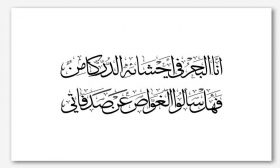 أنا البحر في أحشائه الدر كامن
فهل سألوا الغواص عن صدفاتي